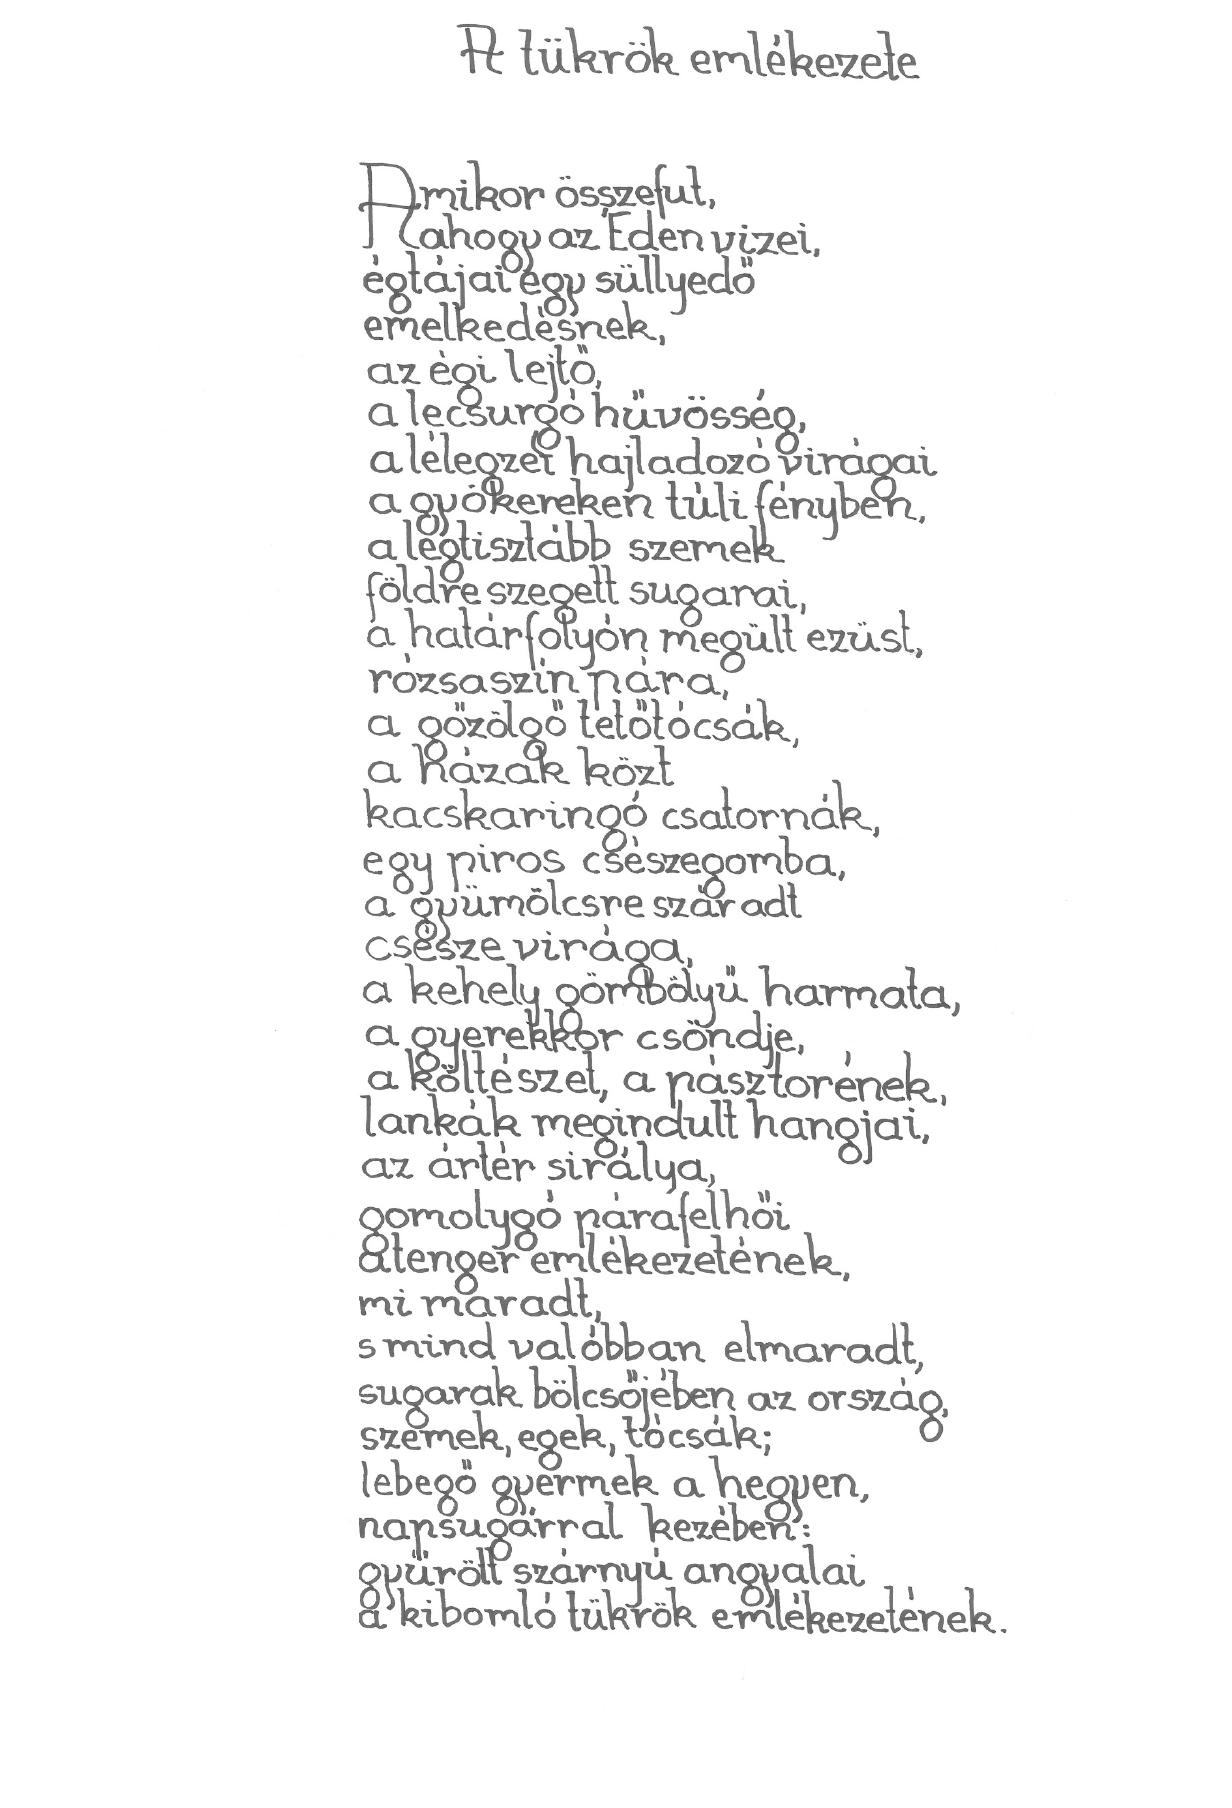 A tükrök emlékezete
Amikor összefut,
ahogy az Éden vizei,
égtájai egy süllyedő
emelkedésnek,
az égi lejtő,
a lecsurgó hűvösség,
a lélegzet hajladozó virágai
a gyökereken túli fényben,
a legtisztább szemek
földre szegett sugarai,
a határfolyón megült ezüst,
rózsaszín pára,
a gőzölgő tetőtócsák,
a házak közt
kacskaringó csatornák,
egy piros csészegomba,
a gyümölcsre száradt
csésze virága,
a kehely gömbölyű harmata,
a gyerekkor csöndje,
a költészet, a pásztorének,
lankák megindult hangjai,
az ártér sirálya,
gomolygó párafelhői
a tenger emlékezetének,
mi maradt,
s mind valóbban elmaradt,
sugarak bölcsőjében az ország,
szemek, egek, tócsák;
lebegő gyermek a hegyen,
napsugárral kezében:
gyűrött szárnyú angyalai
a kibomló tükrök emlékezetének.